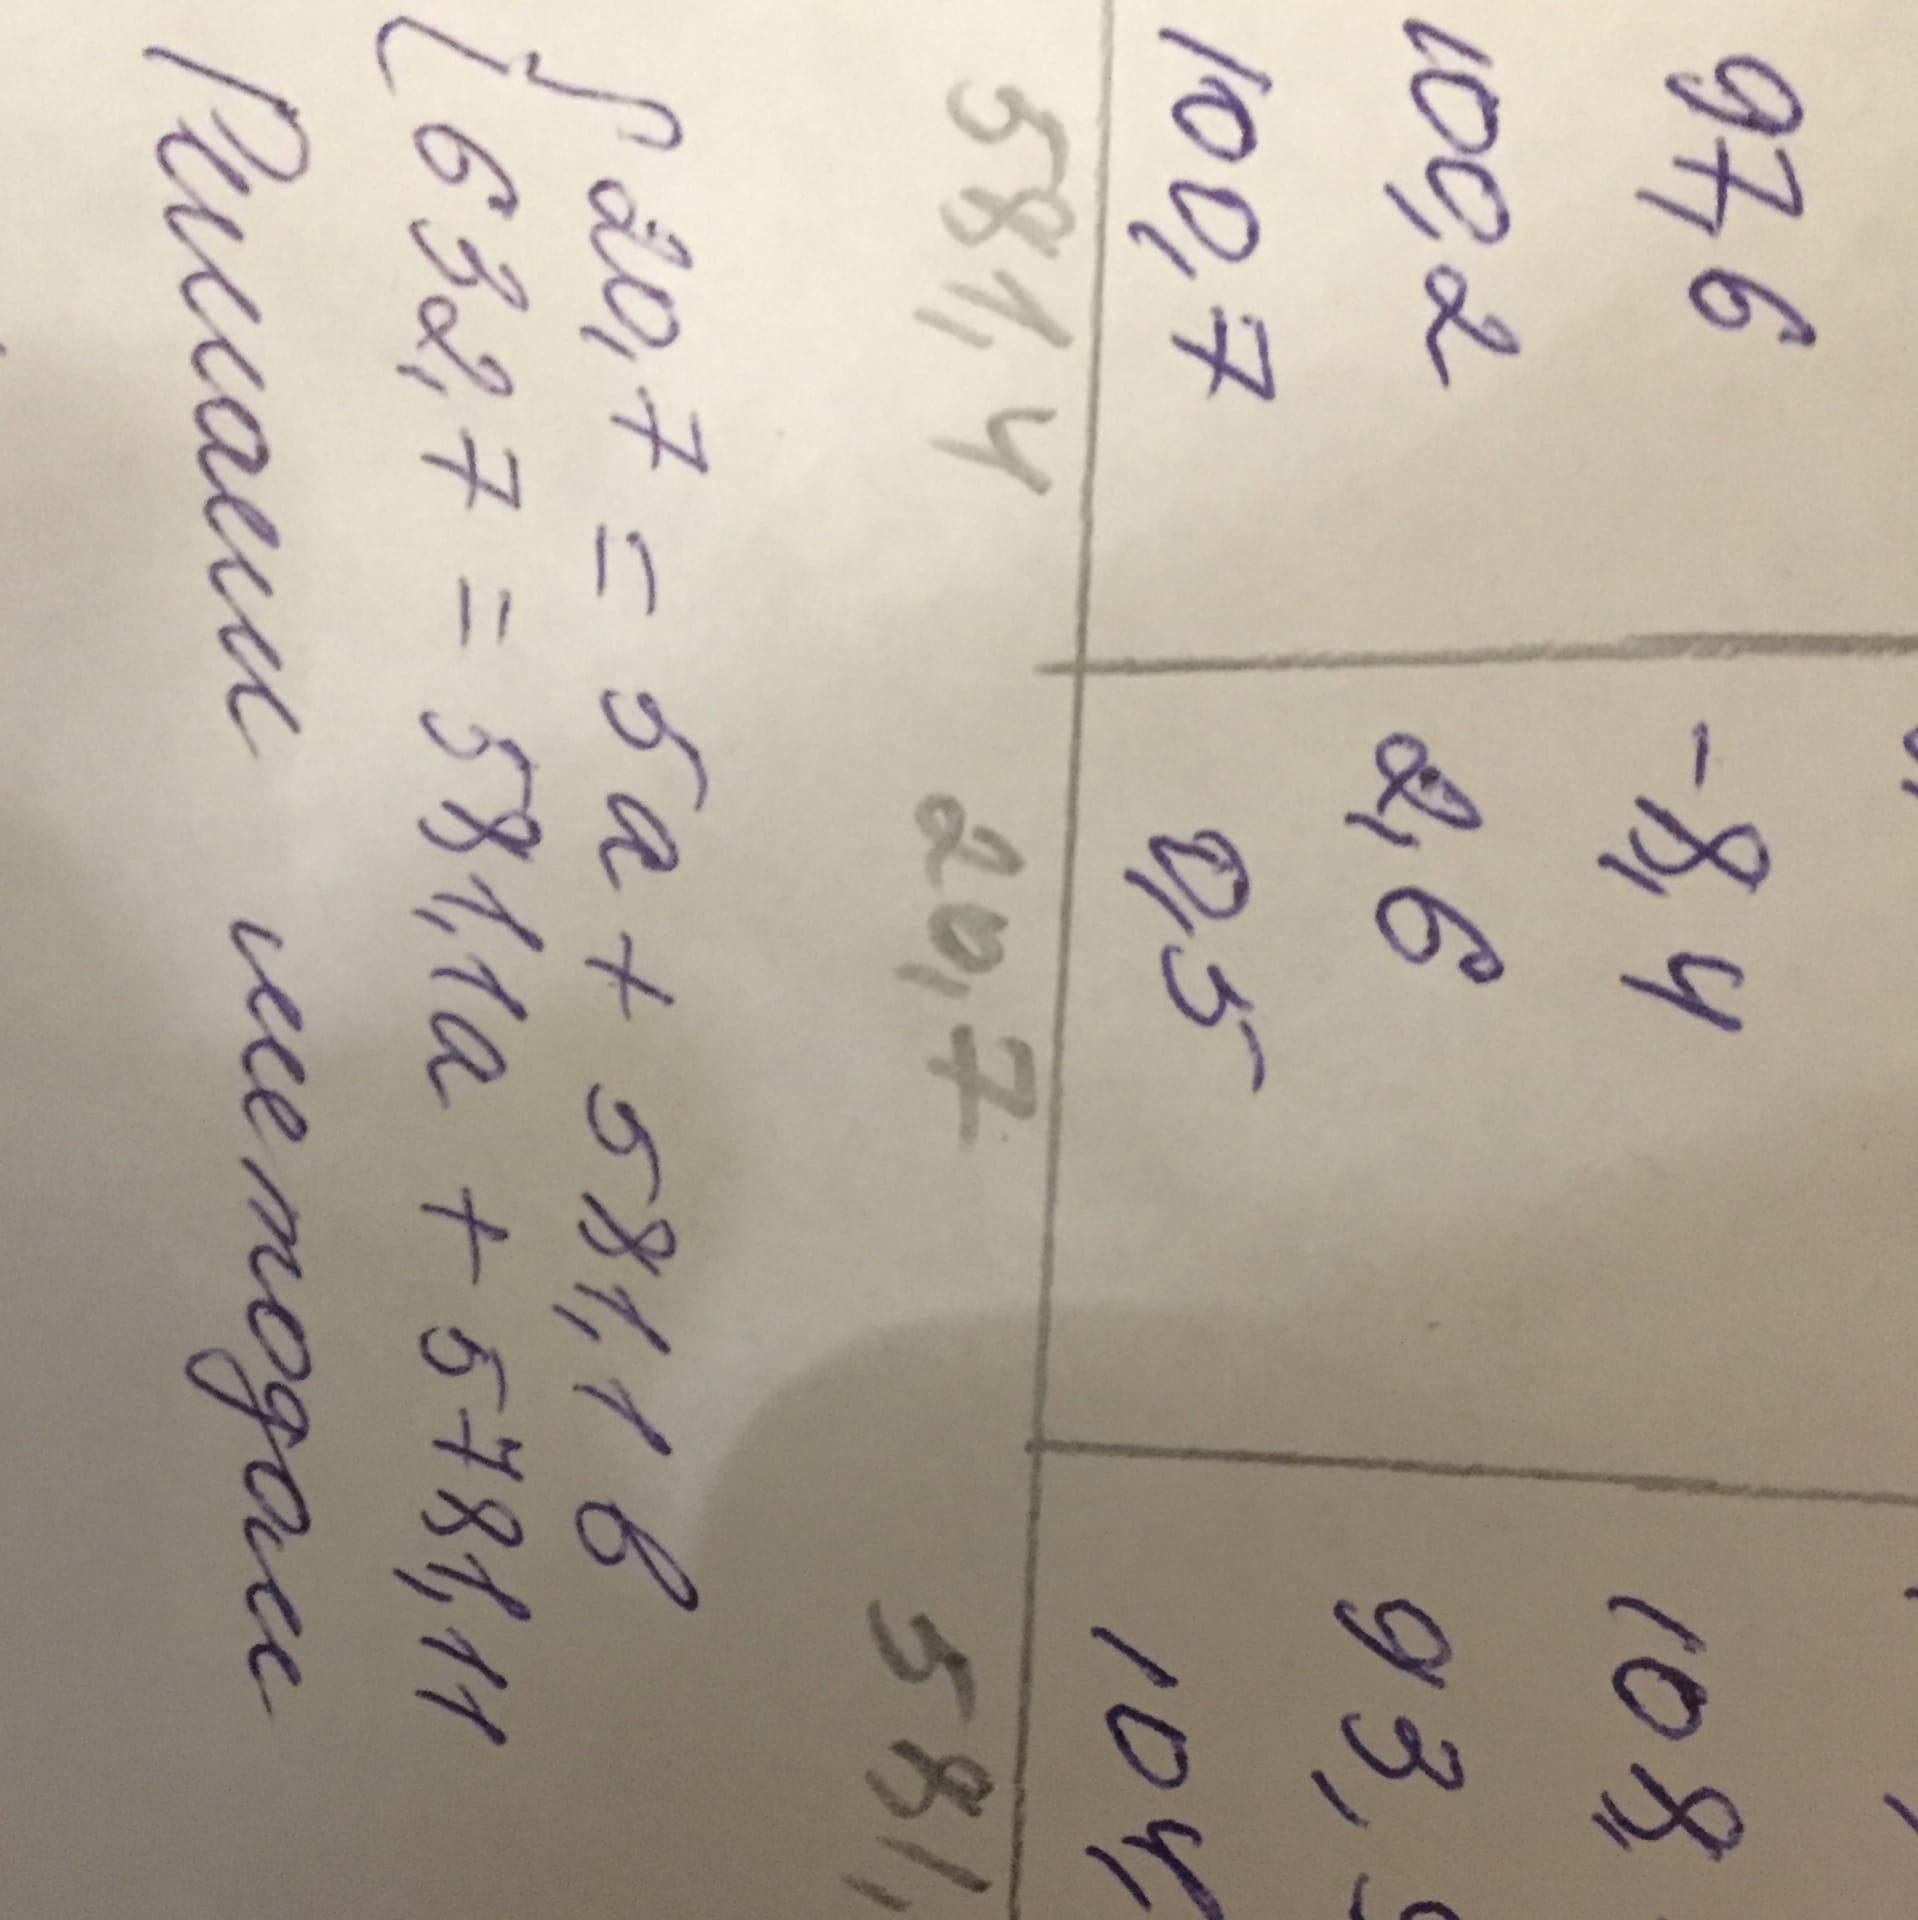 97,6 -8,4 108,
100,2 2,6 93,
100,7 0,5 104,
581,4 20,7 581,
20,7 = 5а + 581,1 в
632,7 = 581,1а + 5781,11
Решаем методам